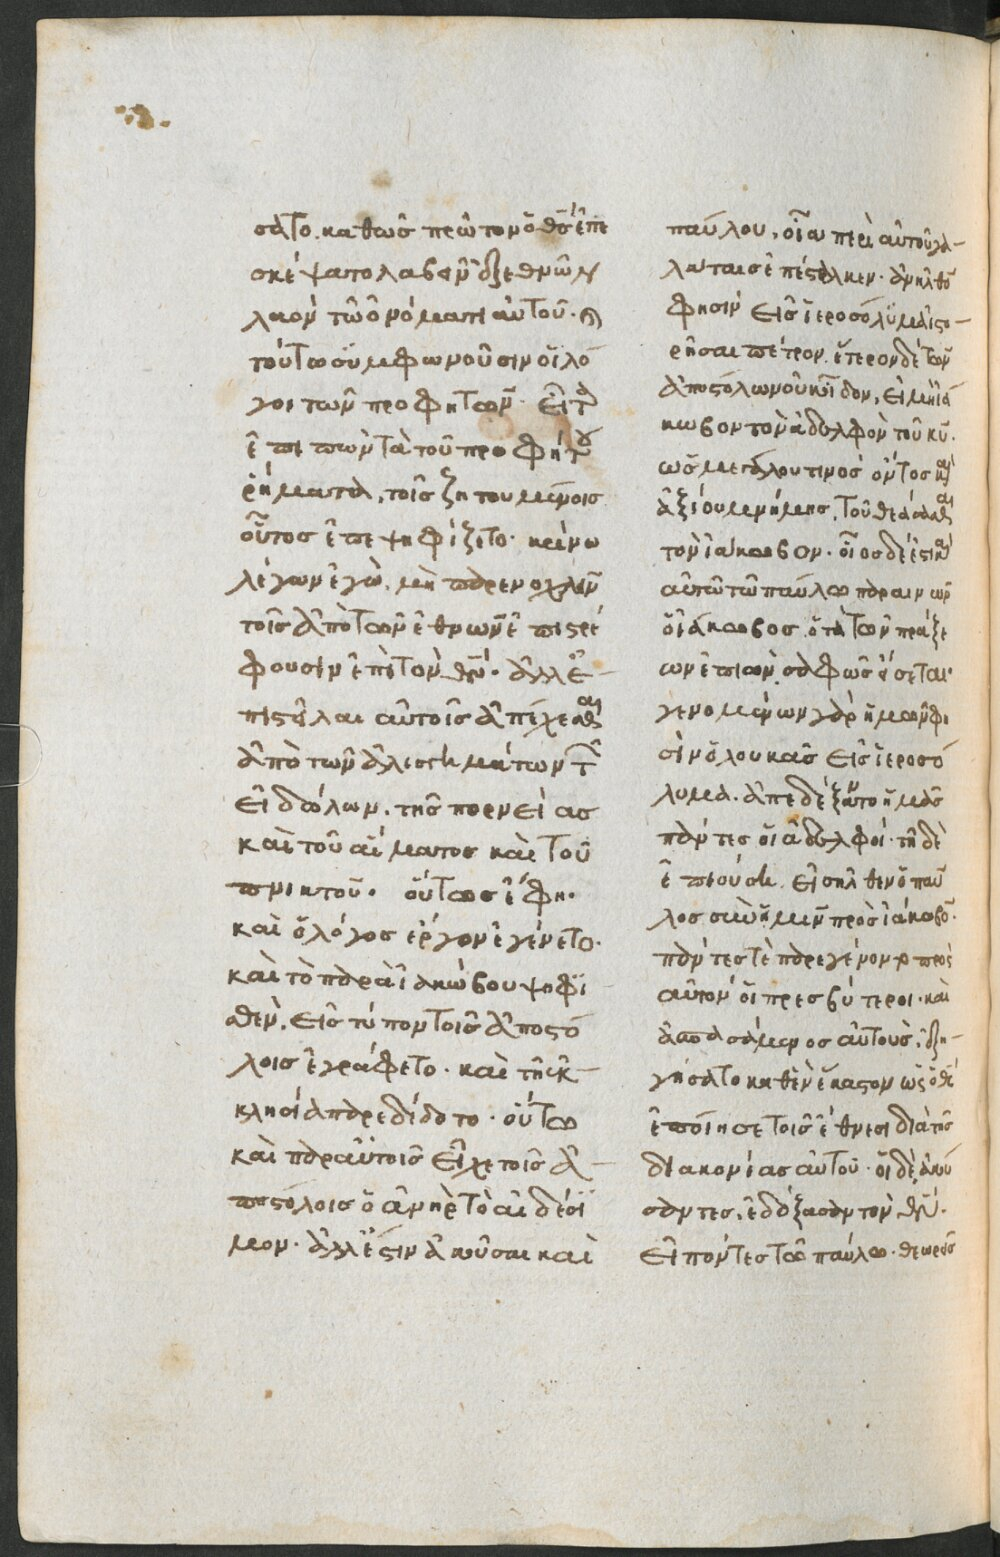 σατο. καθὼς πρῶτον ὁ θς ἐπε
σκέψατο λαβεῖν ἐξ ἐθνῶν
λαὸν τῶ ὀνόματι αὐτοῦ. κ
τούτω συμφωνοῦσιν οἱ λό
γοι τῶν προφητῶν. εἶτ
ἐπειπὼν τὰ τοῦ προφήτου
ῥήματα, τοῖς ζητουμένοις
οὗτος ἐπεψηφίζετο. κρίνω
λέγων ἐγὼ, μὴ παρενοχλεῖν
τοῖς ἀπὸ τῶν ἐθνῶν ἐπιστρέ
φουσιν ἐπὶ τὸν θν. ἀλλ' ἐ-
πιστεῖλαι αὐτοῖς ἀπέχεσθαι
ἀπὸ τῶν ἀλισγημάτων τ
εἰδώλων. τῆς πορνείας
καὶ τοῦ αἵματος καὶ τοῦ
πνικτοῦ. οὕτως ἔφη.
καὶ ὁ λόγος ἔργον ἐγένετο.
καὶ τὸ παρὰ ἰακώβου ψηφι
σθὲν, εἰς τύπον τοῖς ἀποστό
λοις ἐγράφετο. καὶ τῆ ἐκ-
κλησία παρεδίδοτο. οὕτω
καὶ παρ' αὐτοῖς εἶχε τοῖς ἀ-
ποστόλοις ὁ ἀνὴρ τὸ αἰδέσι
μον. ἀλλ' ἔστιν ἀκοῦσαι καὶ
παύλου, οἷα περὶ αὐτοῦ γα-
λάταις ἐπέστελλεν. ἀνῆλθον
φησὶν εἰς ἱεροσόλυμα ἱστο-
ρῆσαι πέτρον. ἕτερον δὲ τῶν
ἀποστόλων οὐκ εἶδον, εἰ μὴ ἰά
κωβον τὸν ἀδελφὸν τοῦ κυ.
ὡς μεγάλου τινος ὄντος καὶ
ἀξίου μνήμης, τοῦ θεάσασθαι
τὸν ἰάκωβον. οἷος δέ ἐστι καὶ
αὐτῶ τῶ παύλω παραινῶν
ὁ ἰάκωβος. ὁ τὰ τῶν πράξε
ων ἐπιὼν, σαφῶς εἴσεται.
γενομένων γὰρ ἡμῶν φη
σὶν ὁ λουκᾶς εἰς ἱεροσό
λυμα. ἀπεδέξαντο ἡμᾶς
πάντες οἱ ἀδελφοί. τῆ δὲ
ἐπιούση. εἰσῆλθεν ὁ παῦ
λος σὺν ἡμῖν πρὸς ἰάκωβον.
πάντες τὲ παρεγένοντο πρὸς
αὐτὸν οἱ πρεσβύτεροι. καὶ
ἀσπασάμενος αὐτοὺς, ἐξη-
γήσατο καθὲν ἕκαστον ὡς ὁ θς
ἐποίησε τοῖς ἔθνεσι διὰ τῆς
διακονίας αὐτοῦ. οἱ δὲ ἀκού
σαντες, ἐδόξασαν τὸν θν.
εἰπόντες τῶ παύλω. θεωρεῖς